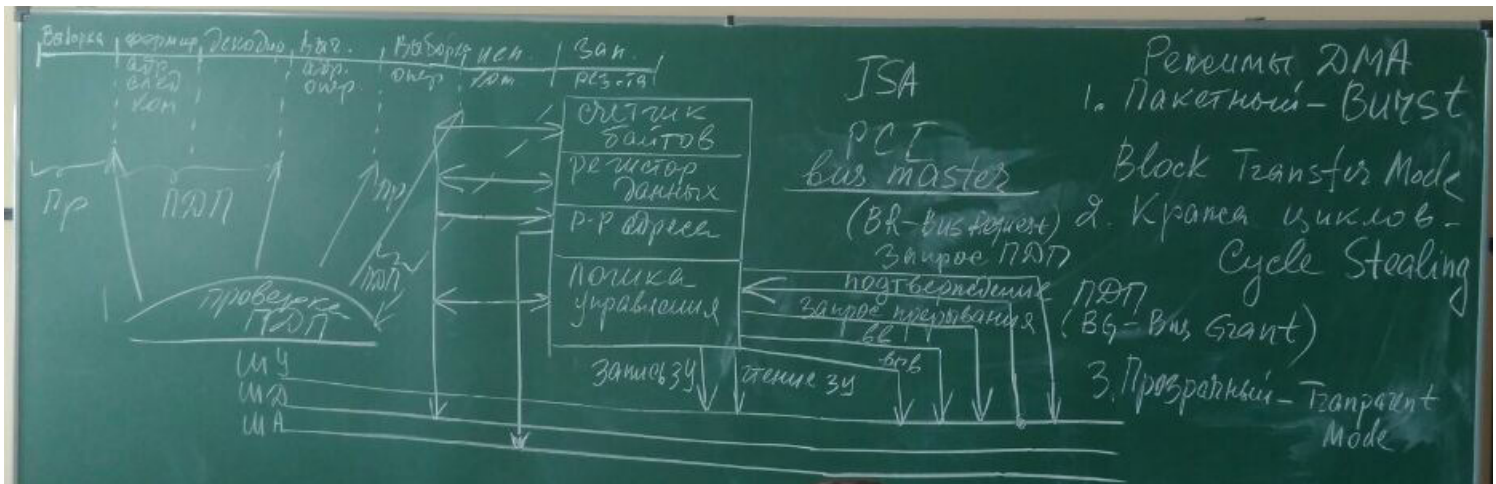 Выборка
формир
адр.
след
ком
Декодир
Выч.
адр.
опер.
Выборка
опер.
исп
ком
Зап.
рез-та
Пр
ПДП
Пр
ПДП
проверка
ПДП
счётчик
байтов
регистр
данных
Р-Р адреса
логика
управления
ШУ
ШД
ША
запись ЗУ
чтение ЗУ
ISA
PCI
bus master
(BR-Bus Request)
Запрос ПДП
подтверждение ПДП
(BG-Bus Grant)
запрос прерывания
вв
выв
Режимы DMA
1. Пакетный - Burst
Block Transfer Mode
2. Кража циклов -
Cycle Stealing
3. Прозрачный - Tranparent
Mode